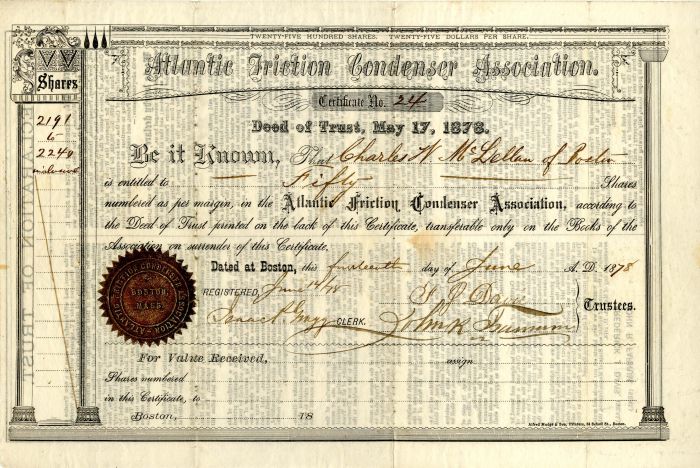 TWENTY-FIVE HUNDRED SHARES. TWENTY-FIVE DOLLARS PER SHARE.
Shares
2191
to
2240
inclusive
Atlantic Friction Condenser Association.
Certificate No. 24
Deed of Trust, May 17, 1878.
Be it Known, That Charles W McLellan of Boston
is entitled to Fifty Shares
numbered as per margin, in the Atlantic Friction Condenser Association, according to
the Deed of Trust printed on the back of this Certificate, transferable only on the Books of the
Association on surrender of this Certificate.
Dated at Boston, this fourteenth day of June A. D. 1878
REGISTERED, June 14/78
CLERK.
Trustees.
ATLANTIC FRICTION CONDENSER ASSOCIATION
BOSTON,
MASS.
For Value Received, assign
Shares numbered
in this Certificate, to
Boston, 18
Alfred Mudge & Son, Printers, 34 School St., Boston.